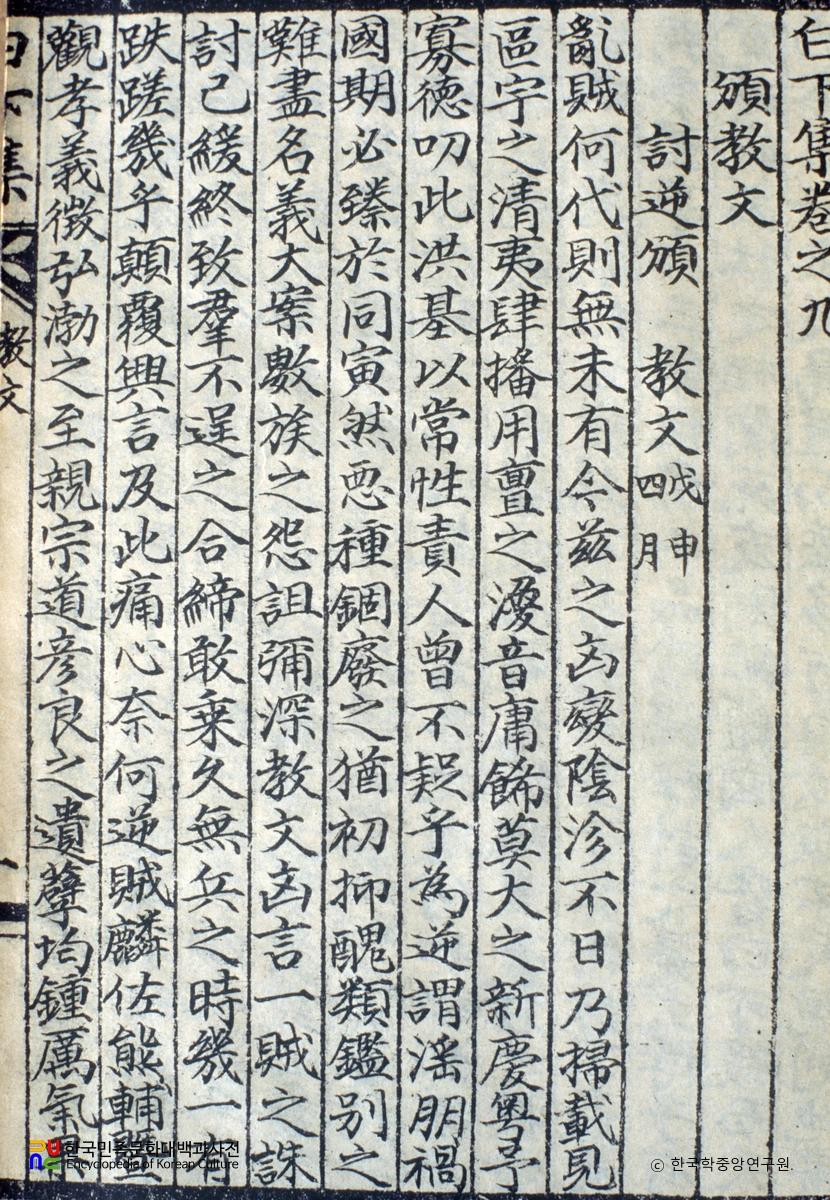 白下集卷之九
頒教文
討逆頒 教文 戊申四月
亂賊何代則無未有今茲之凶變陰沴不日乃掃載見
區宇之清夷肆播用亶之渙音庸餙莫大之新慶粤予
寡德叨此洪基以常性責人曾不疑乎為逆謂淫朋禍
國期必臻於同寅然惡種錮廢之猶初抑醜類鑑別之
難盡名義大案數族之怨詛彌深教文凶言一賊之誅
討已緩終致羣不逞之合締敢乘久無兵之時幾一有
跌蹉幾乎顛覆興言及此痛心奈何逆賊麟佐熊輔
觀孝義徵弘渤之至親宗道彥良之遺孽均鍾厲氣
白下集
教文
한국민족문화대백과사전
Encyclopedia of Korean Culture
© 한국학중앙연구원